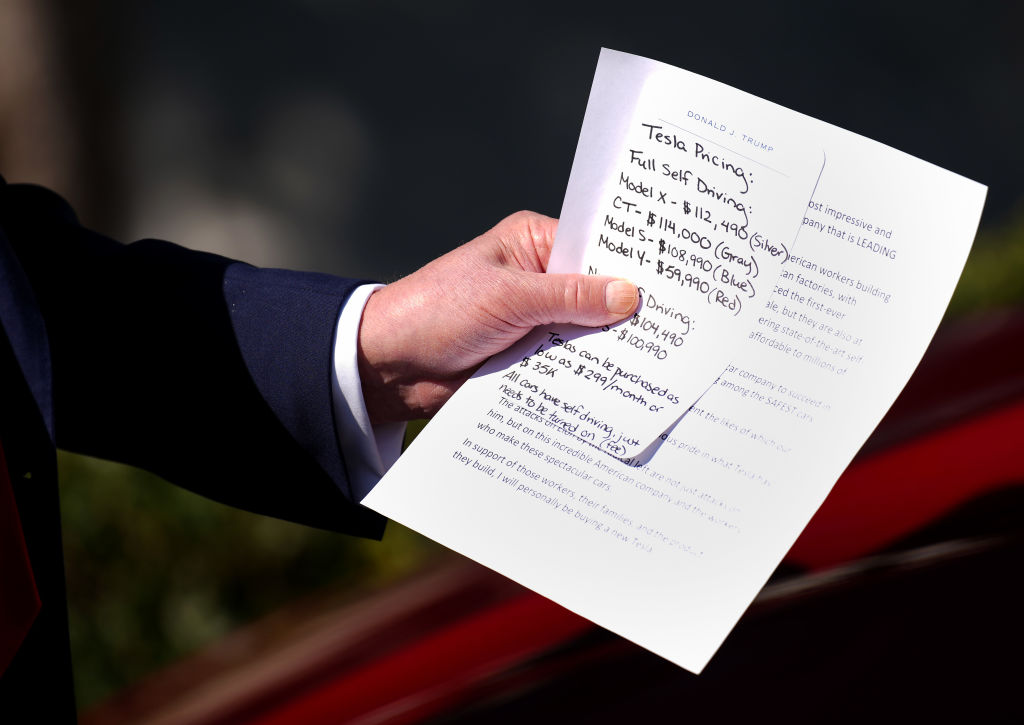 DONALD J. TRUMP
Tesla Pricing:
Full Self Driving:
Model X - $112,490 (Silver)
CT - $114,000 (Gray)
Model S - $108,990 (Blue)
Model Y - $59,990 (Red)
Driving:
$104,490
- $100,990
Teslas can be purchased as
low as $299/month or
$35K
All cars have self driving, just
needs to be turned on (fee)
ost impressive and
pany that is LEADING
erican workers building
factories, with
ced the first-ever
but they are also at
ering state-of-the-art self
affordable to millions of
company to succeed in
among the SAFEST cars
ent the likes of which our
pride in what Tesla has
The attacks on left are not just attacks on
him, but on this incredible American company and the workers
who make these spectacular cars.
In support of those workers, their families, and the product
they build, I will personally be buying a new Tesla.